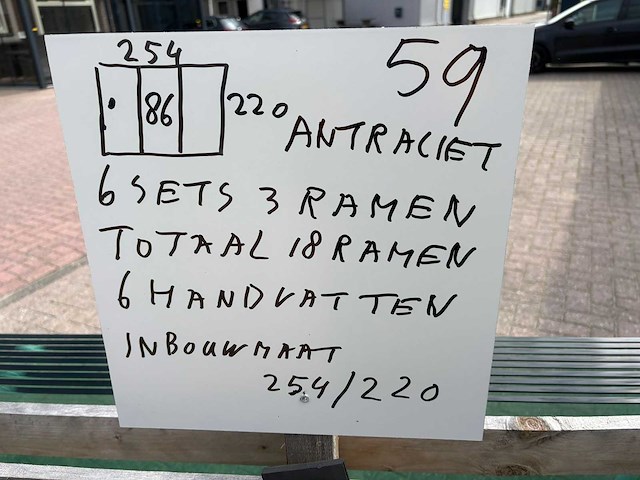 254
59
86
220
ANTRACIET
6 SETS 3 RAMEN
TOTAAL 18 RAMEN
6 HANDVATTEN
INBOUWMAAT
254/220